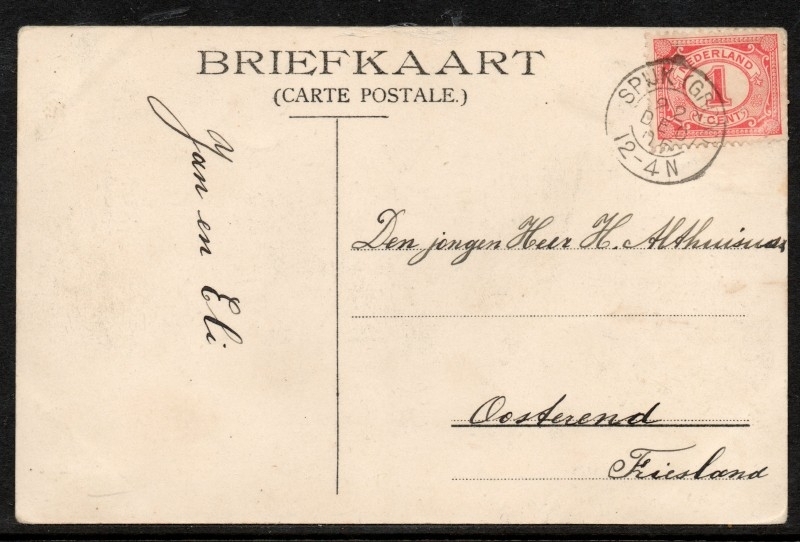 BRIEFKAART
(CARTE POSTALE.)
NEDERLAND
1
(1 CENT)
SPIJK (GR
DEC
12-4N
Jan en Eli
Den jongen Heer H. Althuisius
Oosterend
Friesland